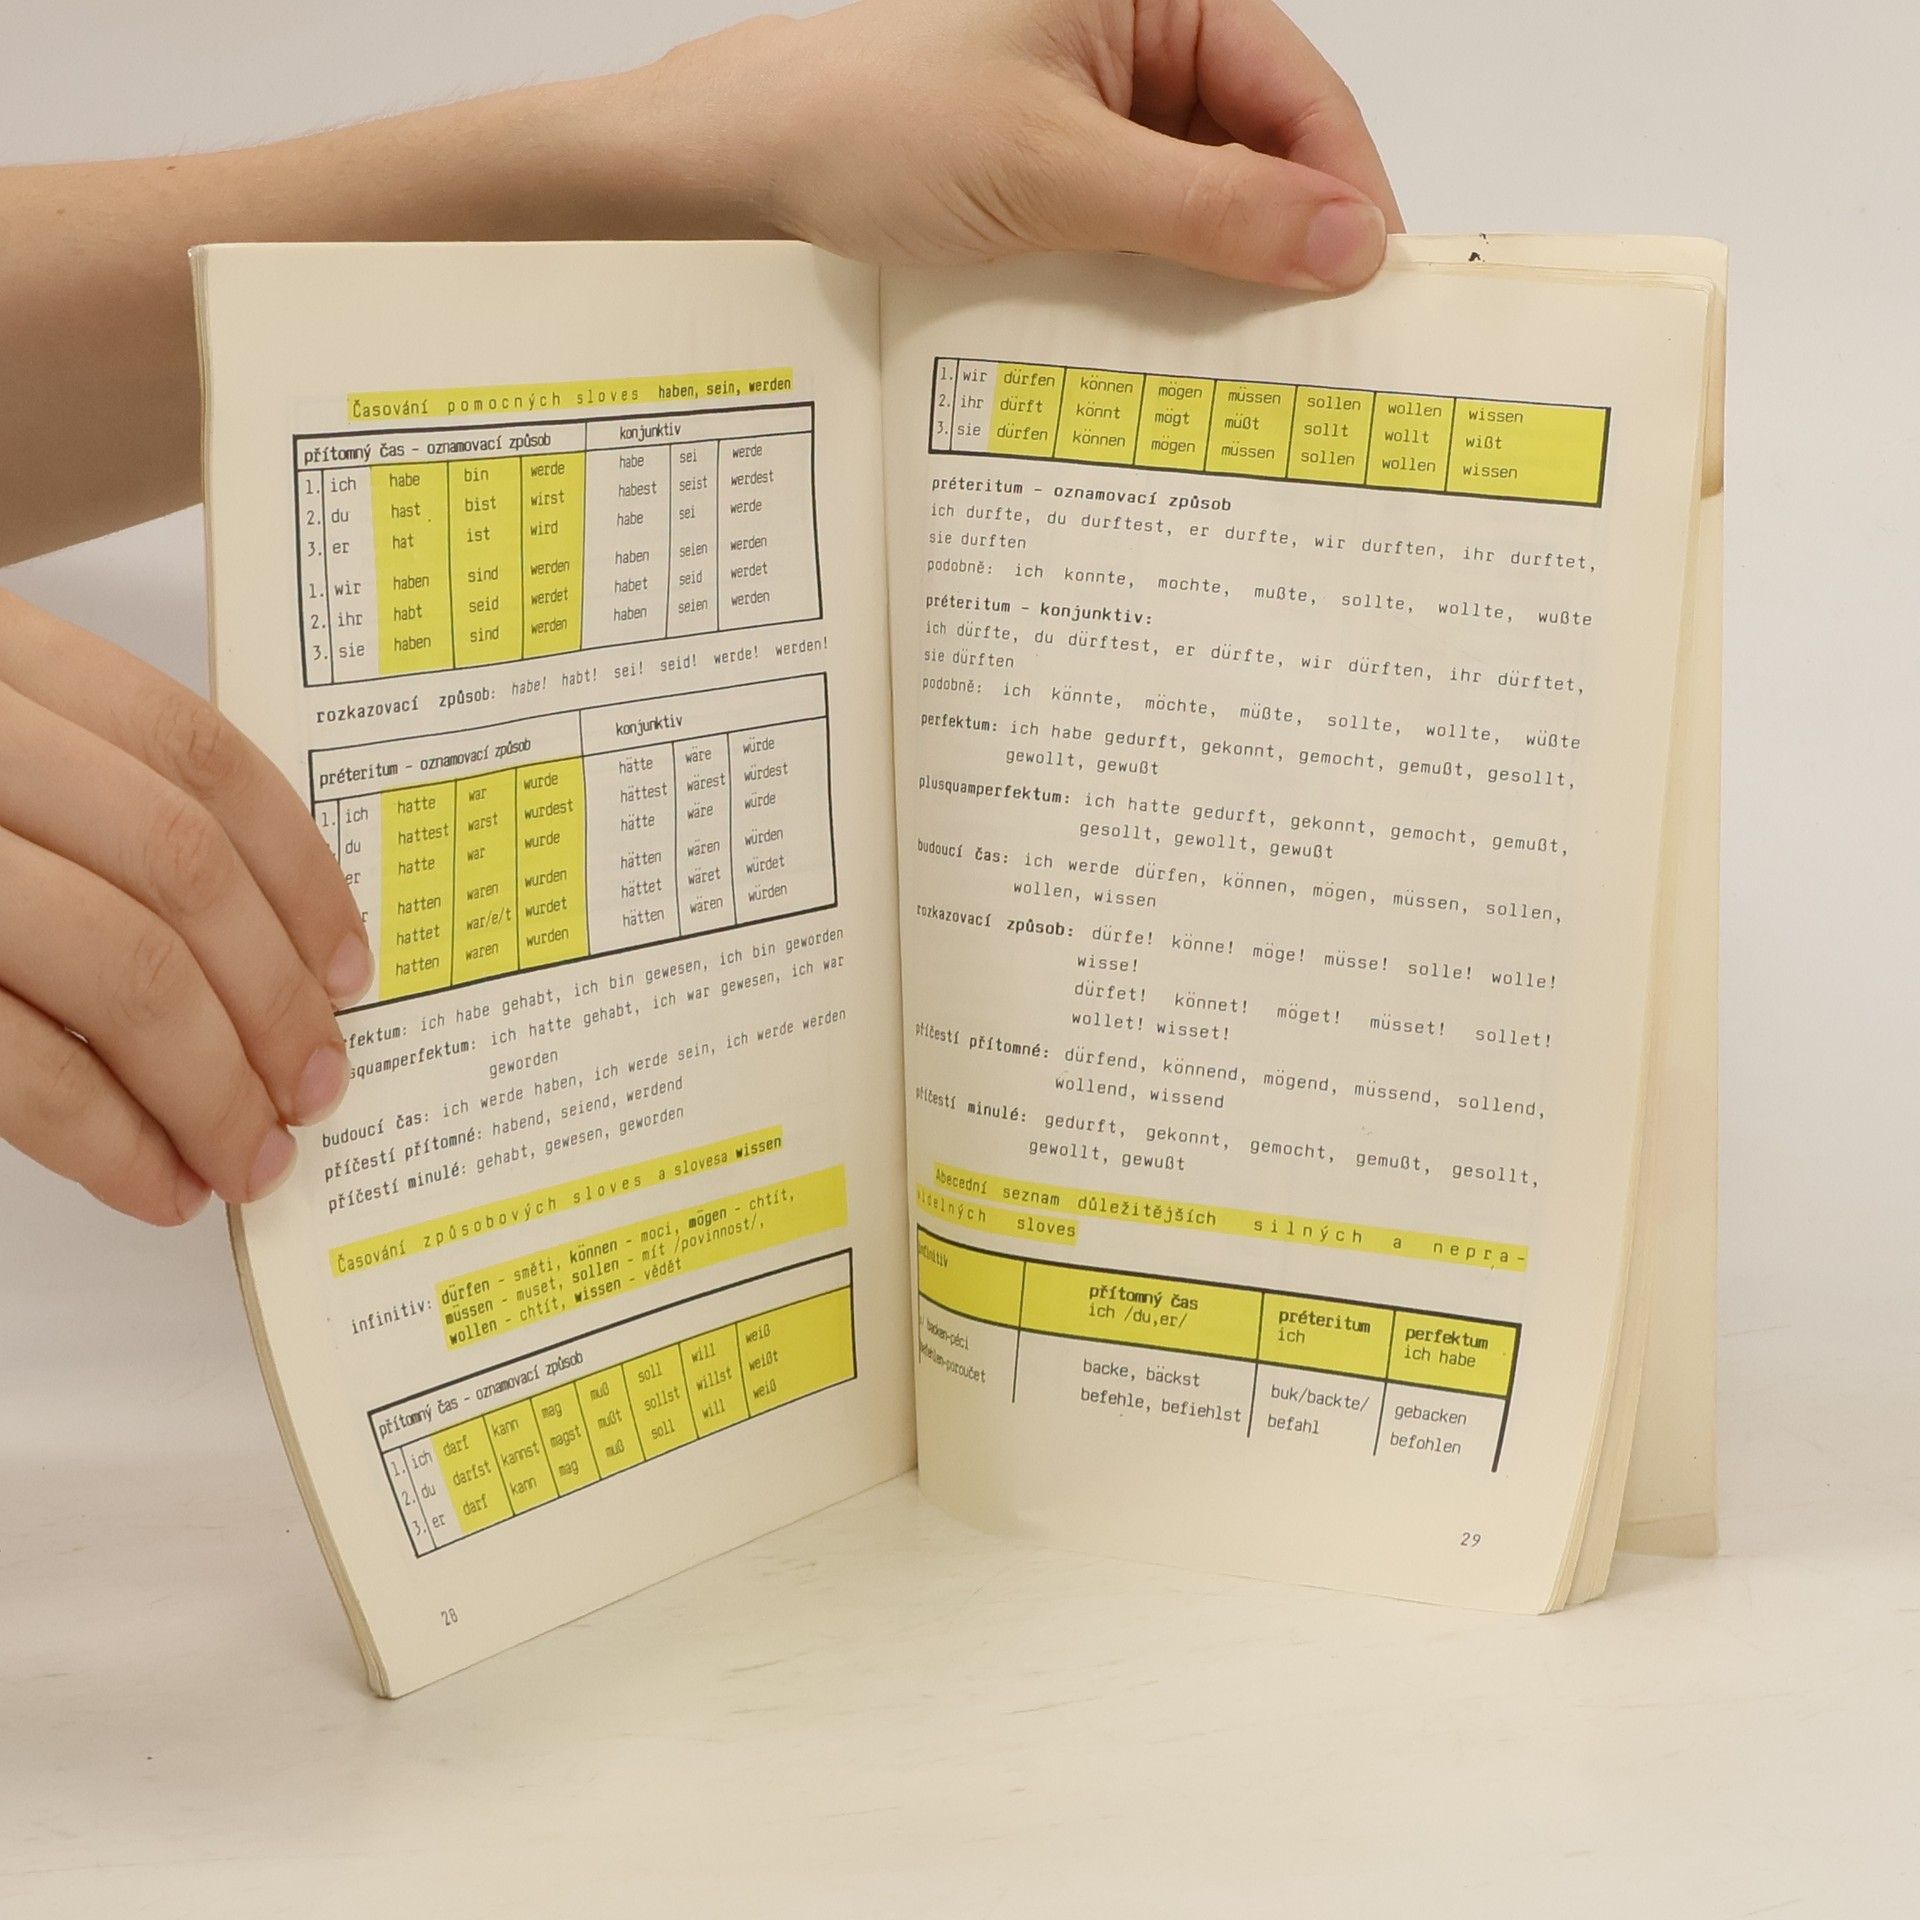 Časování pomocných sloves haben, sein, werden
přítomný čas - oznamovací způsob konjunktiv
1. ich habe bin werde habe sei werde
2. du hast bist wirst habest seist werdest
3. er hat ist wird habe sei werde
1. wir haben sind werden haben seien werden
2. ihr habt seid werdet habet seid werdet
3. sie haben sind werden haben seien werden
rozkazovací způsob: habe! habt! sei! seid! werde! werden!
préteritum - oznamovací způsob konjunktiv
1. ich hatte war wurde hätte wäre würde
du hattest warst wurdest hättest wärest würdest
er hatte war wurde hätte wäre würde
hatten waren wurden hätten wären würden
hattet war/e/t wurdet hättet wäret würdet
hatten waren wurden hätten wären würden
fektum: ich habe gehabt, ich bin gewesen, ich bin geworden
squamperfektum: ich hatte gehabt, ich war gewesen, ich war
geworden
budoucí čas: ich werde haben, ich werde sein, ich werde werden
příčestí přítomné: habend, seiend, werdend
příčestí minulé: gehabt, gewesen, geworden
Časování způsobových sloves a slovesa wissen
infinitiv: dürfen - směti, können - moci, mögen - chtít,
müssen - muset, sollen - mít /povinnost/,
wollen - chtít, wissen - vědět
přítomný čas - oznamovací způsob
1. ich darf kann mag muß soll will weiß
2. du darfst kannst magst mußt sollst willst weißt
3. er darf kann mag muß soll will weiß
28
1. wir dürfen können mögen müssen sollen wollen wissen
2. ihr dürft könnt mögt müßt sollt wollt wißt
3. sie dürfen können mögen müssen sollen wollen wissen
préteritum - oznamovací způsob
ich durfte, du durftest, er durfte, wir durften, ihr durftet,
sie durften
podobně: ich konnte, mochte, mußte, sollte, wollte, wußte
préteritum - konjunktiv:
ich dürfte, du dürftest, er dürfte, wir dürften, ihr dürftet,
sie dürften
podobně: ich könnte, möchte, müßte, sollte, wollte, wüßte
perfektum: ich habe gedurft, gekonnt, gemocht, gemußt, gesollt,
gewollt, gewußt
plusquamperfektum: ich hatte gedurft, gekonnt, gemocht, gemußt,
gesollt, gewollt, gewußt
budoucí čas: ich werde dürfen, können, mögen, müssen, sollen,
wollen, wissen
rozkazovací způsob: dürfe! könne! möge! müsse! solle! wolle!
wisse!
dürfet! könnet! möget! müsset! sollet!
wollet! wisset!
příčestí přítomné: dürfend, könnend, mögend, müssend, sollend,
wollend, wissend
příčestí minulé: gedurft, gekonnt, gemocht, gemußt, gesollt,
gewollt, gewußt
Abecední seznam důležitějších silných a nepra-
videlných sloves
infinitiv přítomný čas préteritum perfektum
ich /du,er/ ich ich habe
backen-péci backe, bäckst buk/backte/ gebacken
befehlen-poroučet befehle, befiehlst befahl befohlen
29